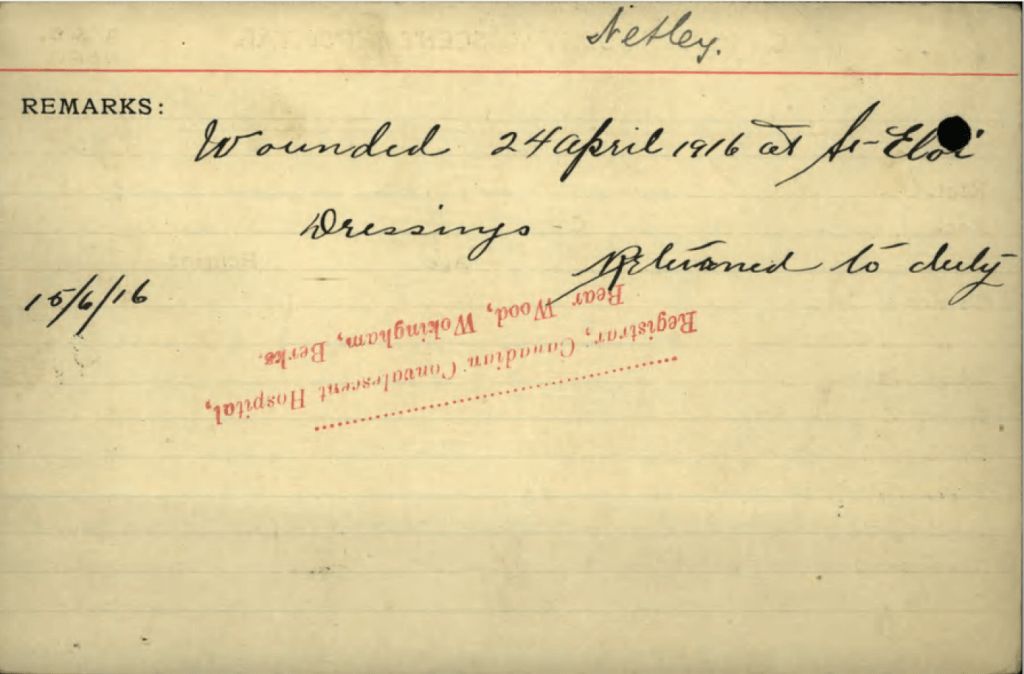 Netley.
REMARKS:
Wounded 24 April 1916 at St-Eloi
Dressings
Returned to duty
15/6/16
Registrar, Canadian Convalescent Hospital,
Bear Wood, Wokingham, Berks.